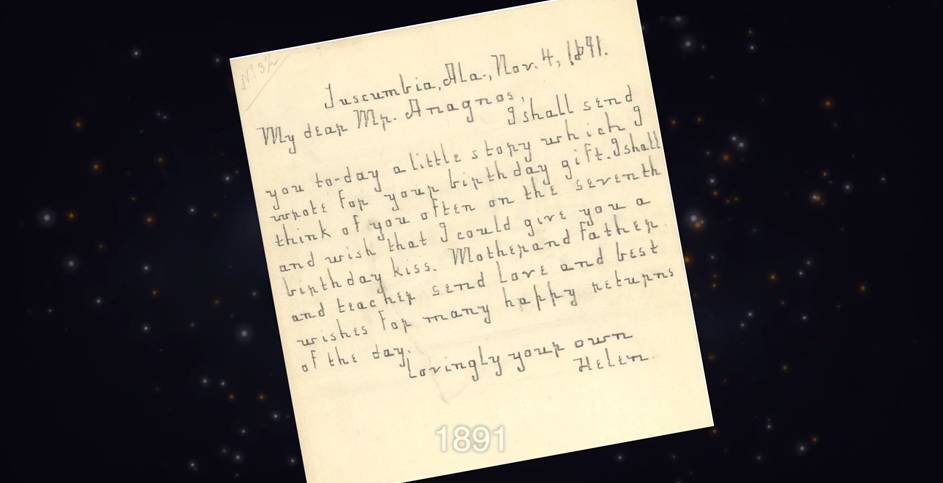 No 34
Tuscumbia, Ala., Nov. 4, 1891.
My dear Mr. Anagnos,
I shall send
you to-day a little story which I
wrote for your birthday gift. I shall
think of you often on the seventh
and wish that I could give you a
birthday kiss. Mother and father
and teacher send love and best
wishes for many happy returns
of the day.
Lovingly your own
Helen.
1891